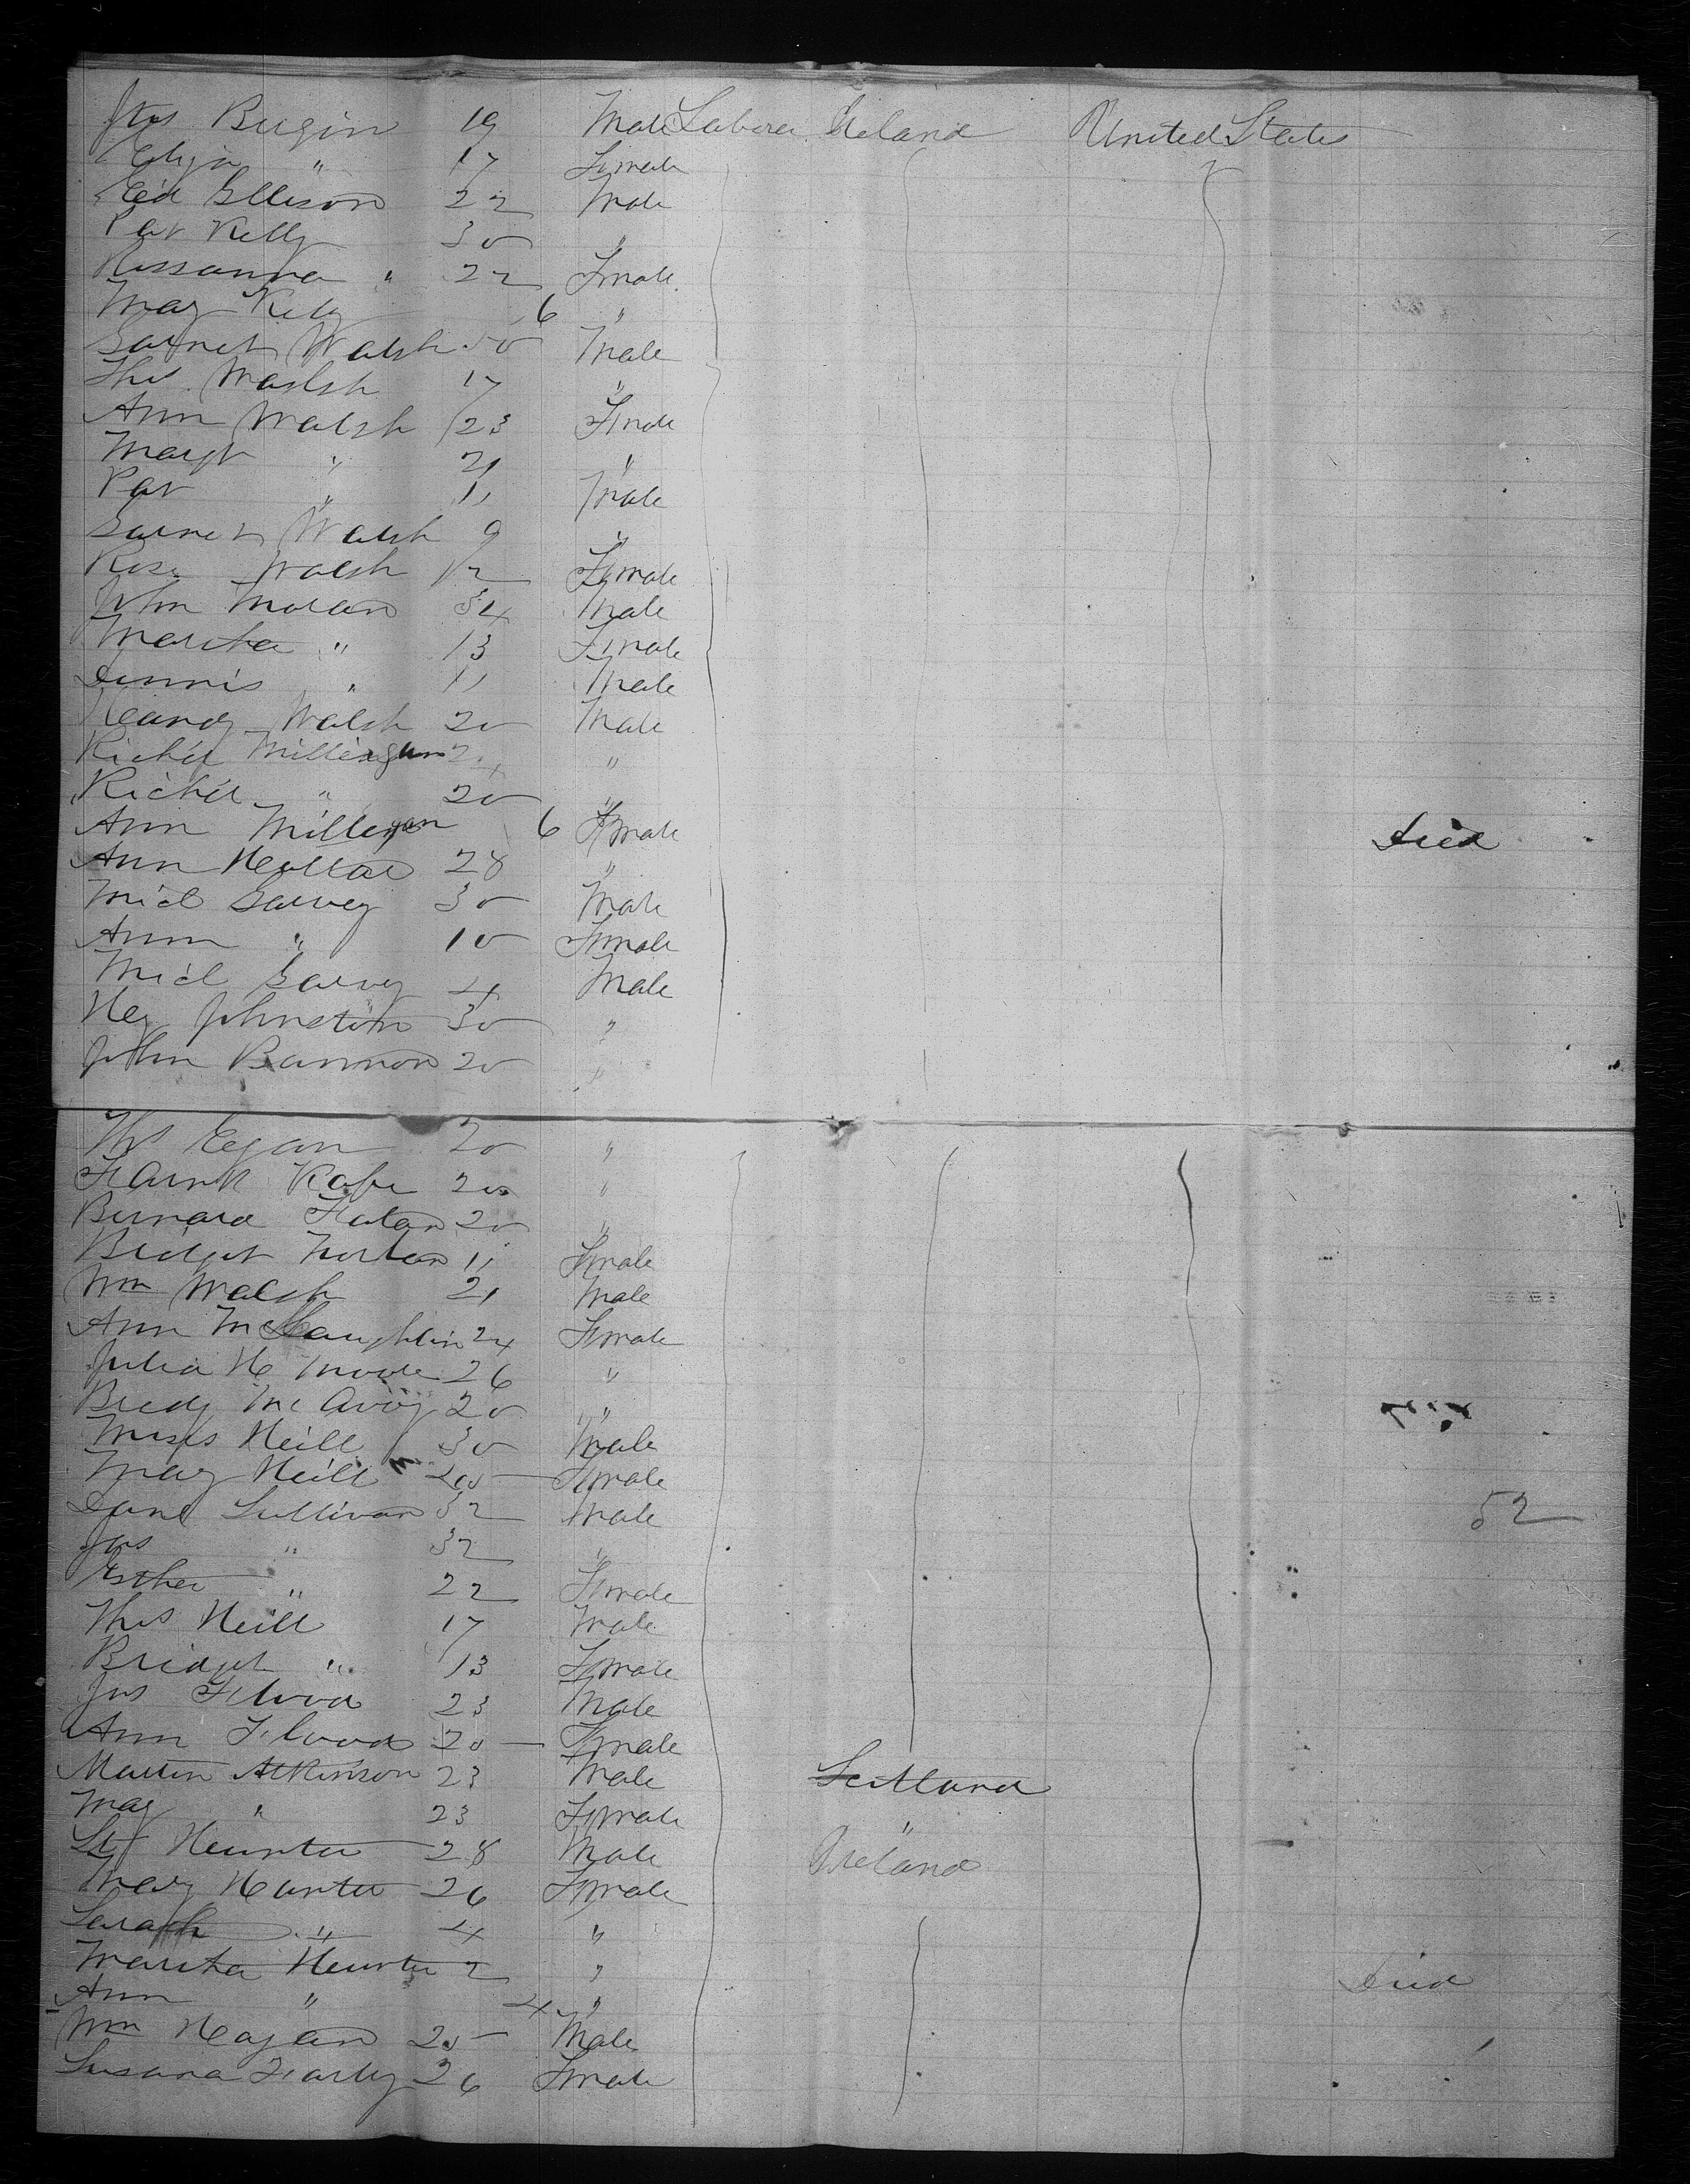 Jas Bergin 19 Male Laborer Ireland United States
Eliza " 17 Female
Ed Ellison 22 Male
Pat Kelly 30 "
Rossanna " 22 Fmale
Mary Kelly 6 "
Garret Walsh 50 Male
Thos Walsh 17 "
Ann Walsh 23 Fmale
Margt " 21 "
Pat " 11 Male
Garret Walsh 9 "
Rose Walsh 12 Female
John Moran 34 Male
Martha " 13 Fmale
Dennis " 11 Male
Walsh 20 Male
Richd Milligan "
Richd " 20 "
Ann Milligan 6 Fmale Died
Ann 28 "
Micl Garvey 30 Male
Ann " 10 Fmale
Micl Garvey 4 Male
Hey Johnston 30 "
John Bannon 20 "
Ths Egan 20 "
20 "
Bernard 20 "
Bridget 11 Fmale
Wm Walsh 21 Male
Ann McLaughlin 24 Fmale
Julia H Moore 26 "
Bridg Mc Avoy 20 "
Moses Neill 30 Male
Mary Neill 20 Fmale
Danl Sullivan 32 Male 52
Jas " 32 "
Esther " 22 Fmale
Thos Neill 17 Male
Bridget " 13 Fmale
Jas Flood 23 Male
Ann Flood 20 Fmale
Martin Atkinson 23 Male Scotland
Mary " 23 Fmale "
Hunter 28 Male Ireland
Mary Hunter 26 Fmale
Sarah " 4 "
Martha Hunter 2 " Died
Ann " 4 "
Wm Hagan 20 Male
Susana Farly 26 Fmale